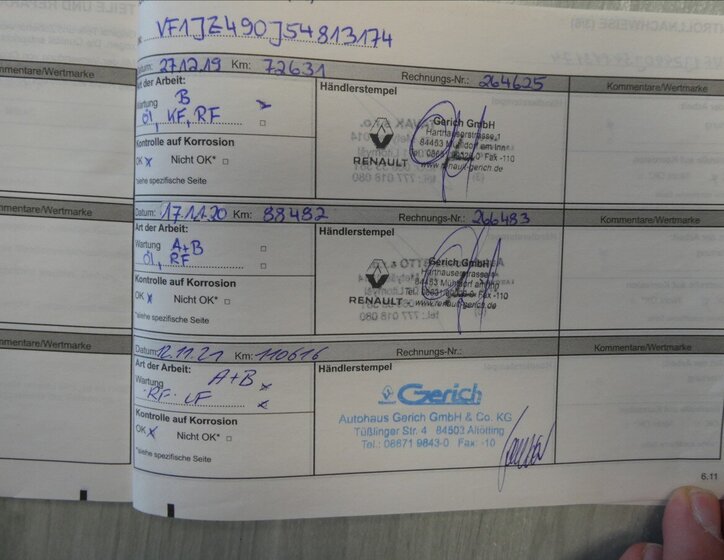 VF1JZ490J54813174
Datum: 27.12.19 Km: 72631 Rechnungs-Nr.: 264625 Kommentare/Wertmarke
Art der Arbeit: Händlerstempel
Wartung B
Öl, KF, RF
Kontrolle auf Korrosion
OK x Nicht OK*
*siehe spezifische Seite
RENAULT
Gerich GmbH
Harthauserstrasse 1
84453 Mühldorf am Inn
www.renault-gerich.de
Kommentare/Wertmarke
Datum: 17.11.20 Km: 88482 Rechnungs-Nr.: 266483 Kommentare/Wertmarke
Art der Arbeit: Händlerstempel
Wartung A+B
Öl, RF
Kontrolle auf Korrosion
OK x Nicht OK*
*siehe spezifische Seite
RENAULT
Gerich GmbH
Harthauserstrasse
www.renault-gerich.de
Kommentare/Wertmarke
Datum: 12.11.21 Km: 110616 Rechnungs-Nr.: Kommentare/Wertmarke
Art der Arbeit: Händlerstempel
Wartung A+B
Kontrolle auf Korrosion
OK x Nicht OK*
*siehe spezifische Seite
Gerich
Autohaus Gerich GmbH & Co. KG
Tüßlinger Str. 4 84503 Altötting
Tel.: 08671 9843-0 Fax: -10
Kommentare/Wertmarke
6.11